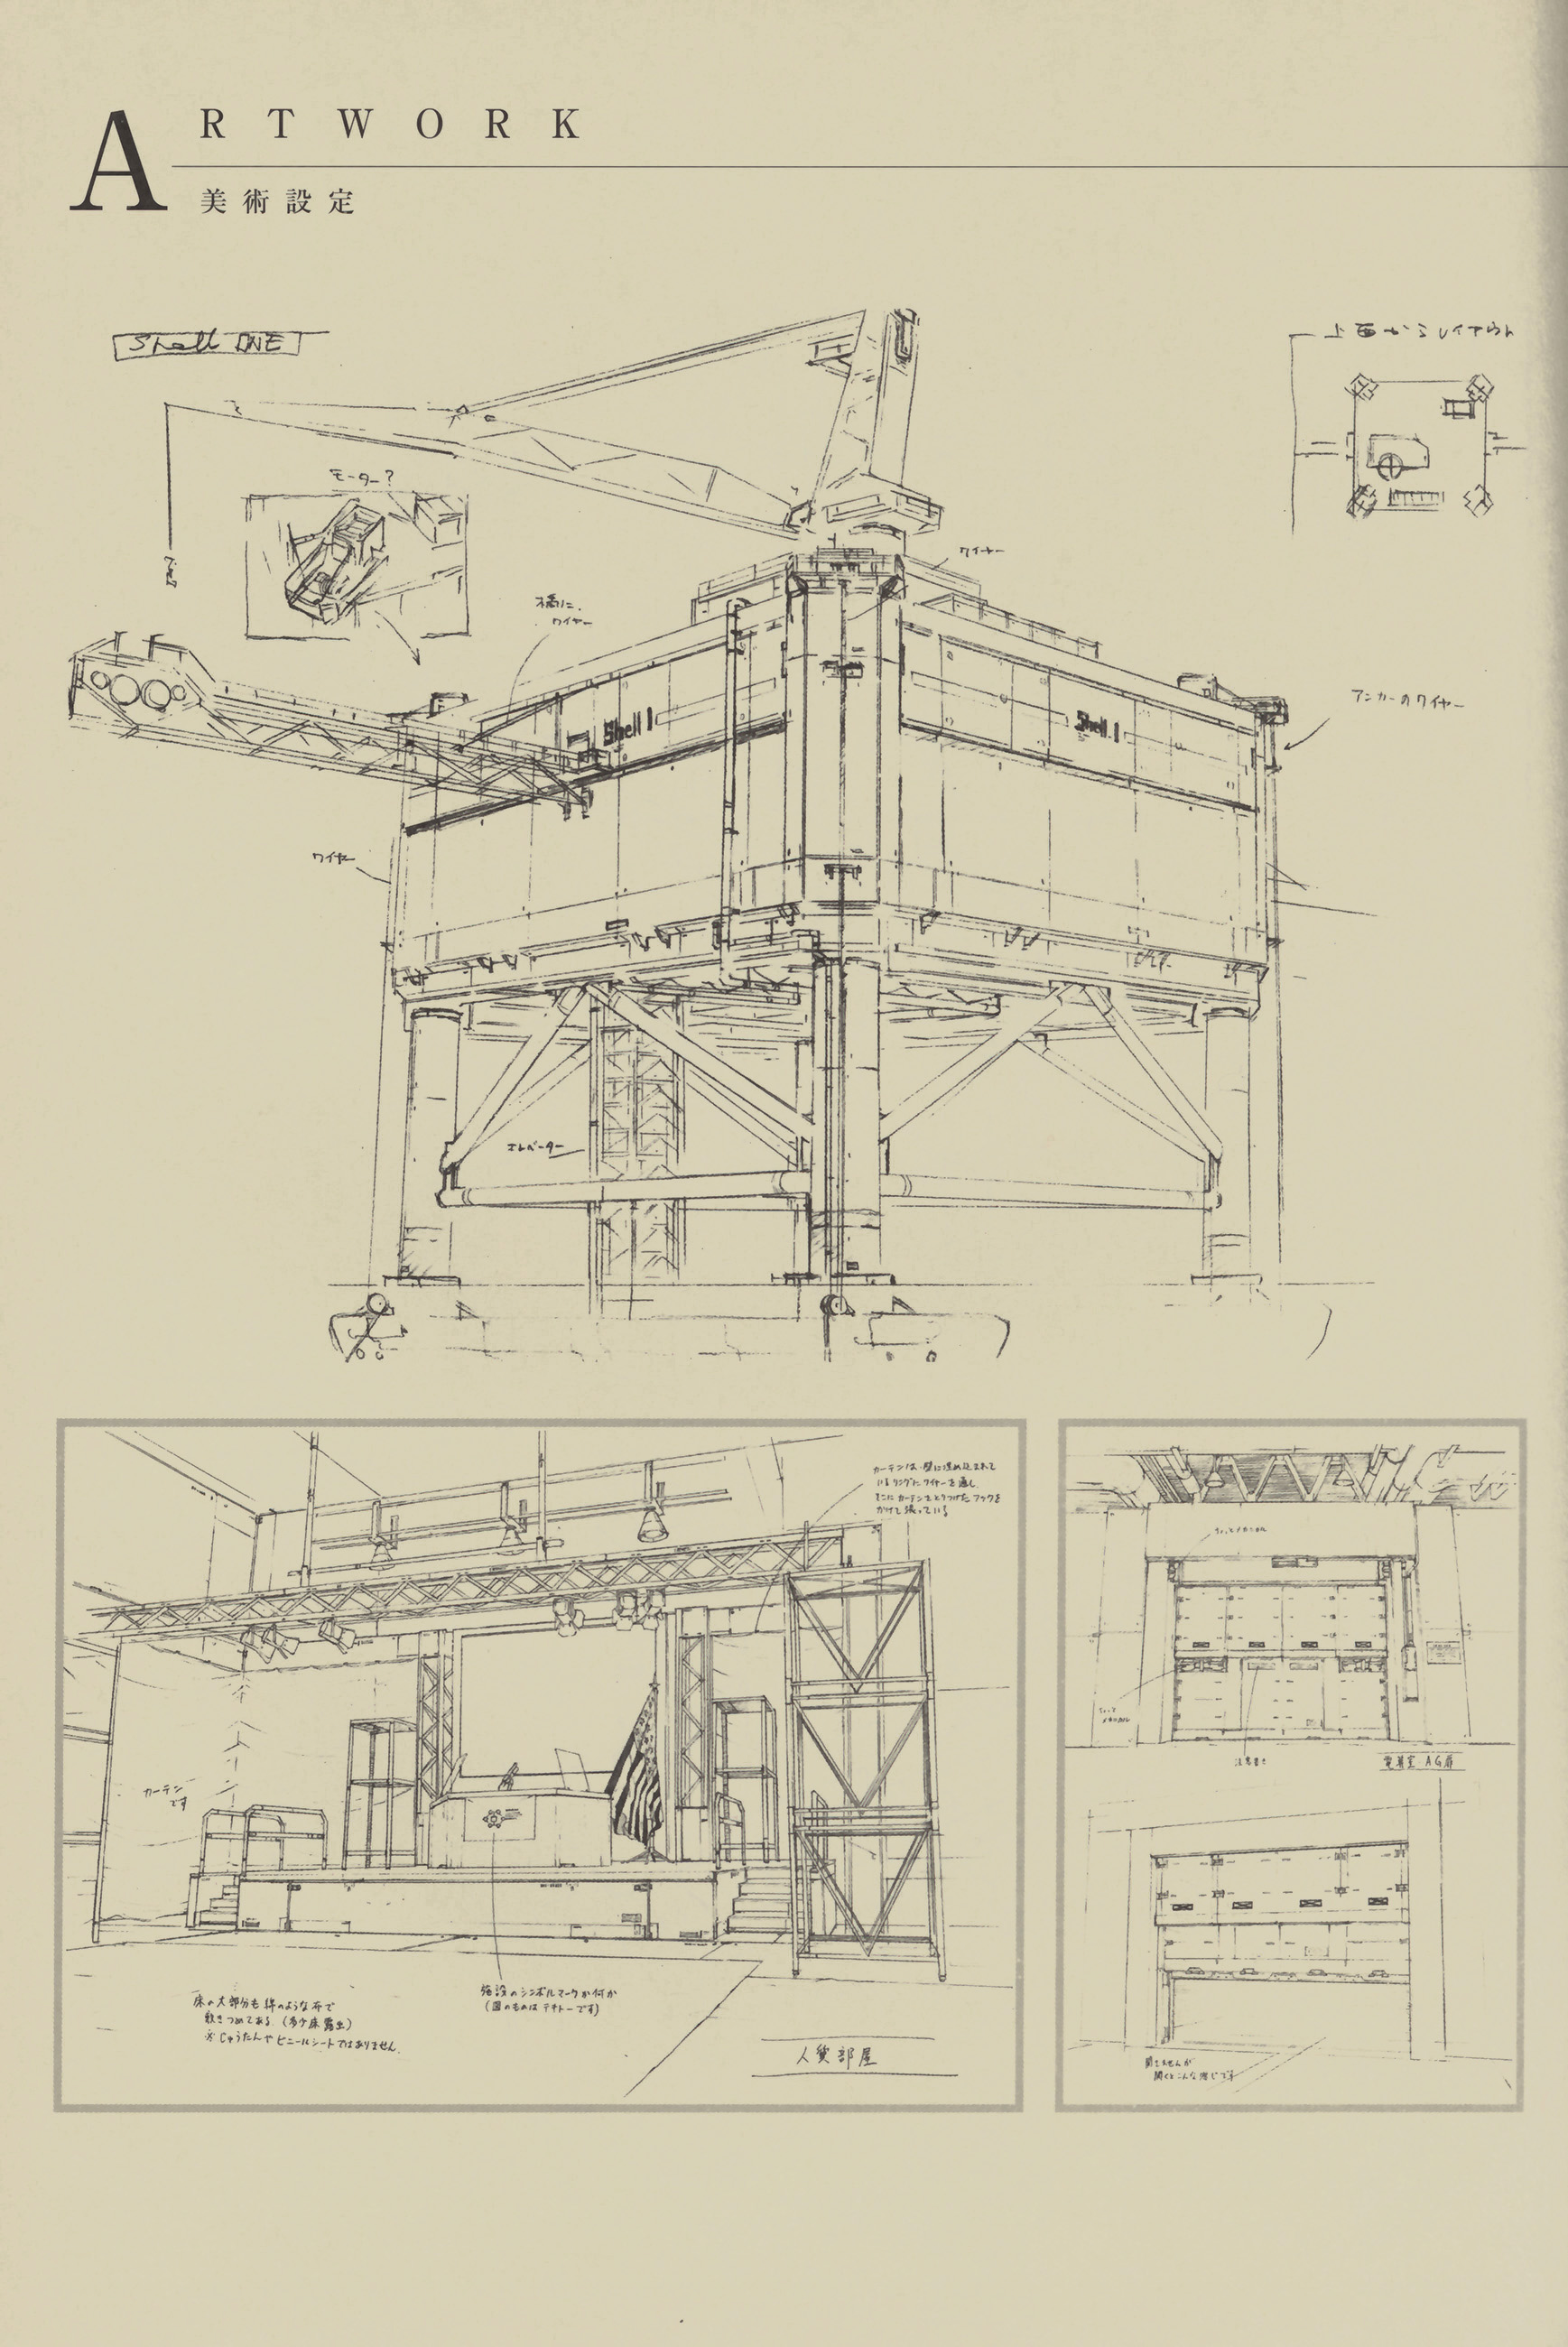 ARTWORK
美術設定
Shell ONE
上面からレイアウト
モーター?
ワイヤー
横に
ワイヤー
Shell 1
Shell.1
アンカーのワイヤー
ワイヤー
エレベーター
カーテンは壁に埋め込まれて
いるリングにワイヤーを通し
そこにカーテンをとりつけたフックを
かけて張っている
カーテン
です
床の大部分も絆のような布で
敷きつめてある
※じゅうたんやビニールシートではありません
施設のシンボルマークか何か
(図のものはテキトーです)
人質部屋
注意書き
AG扉
開きませんが
開くとこんな感じです